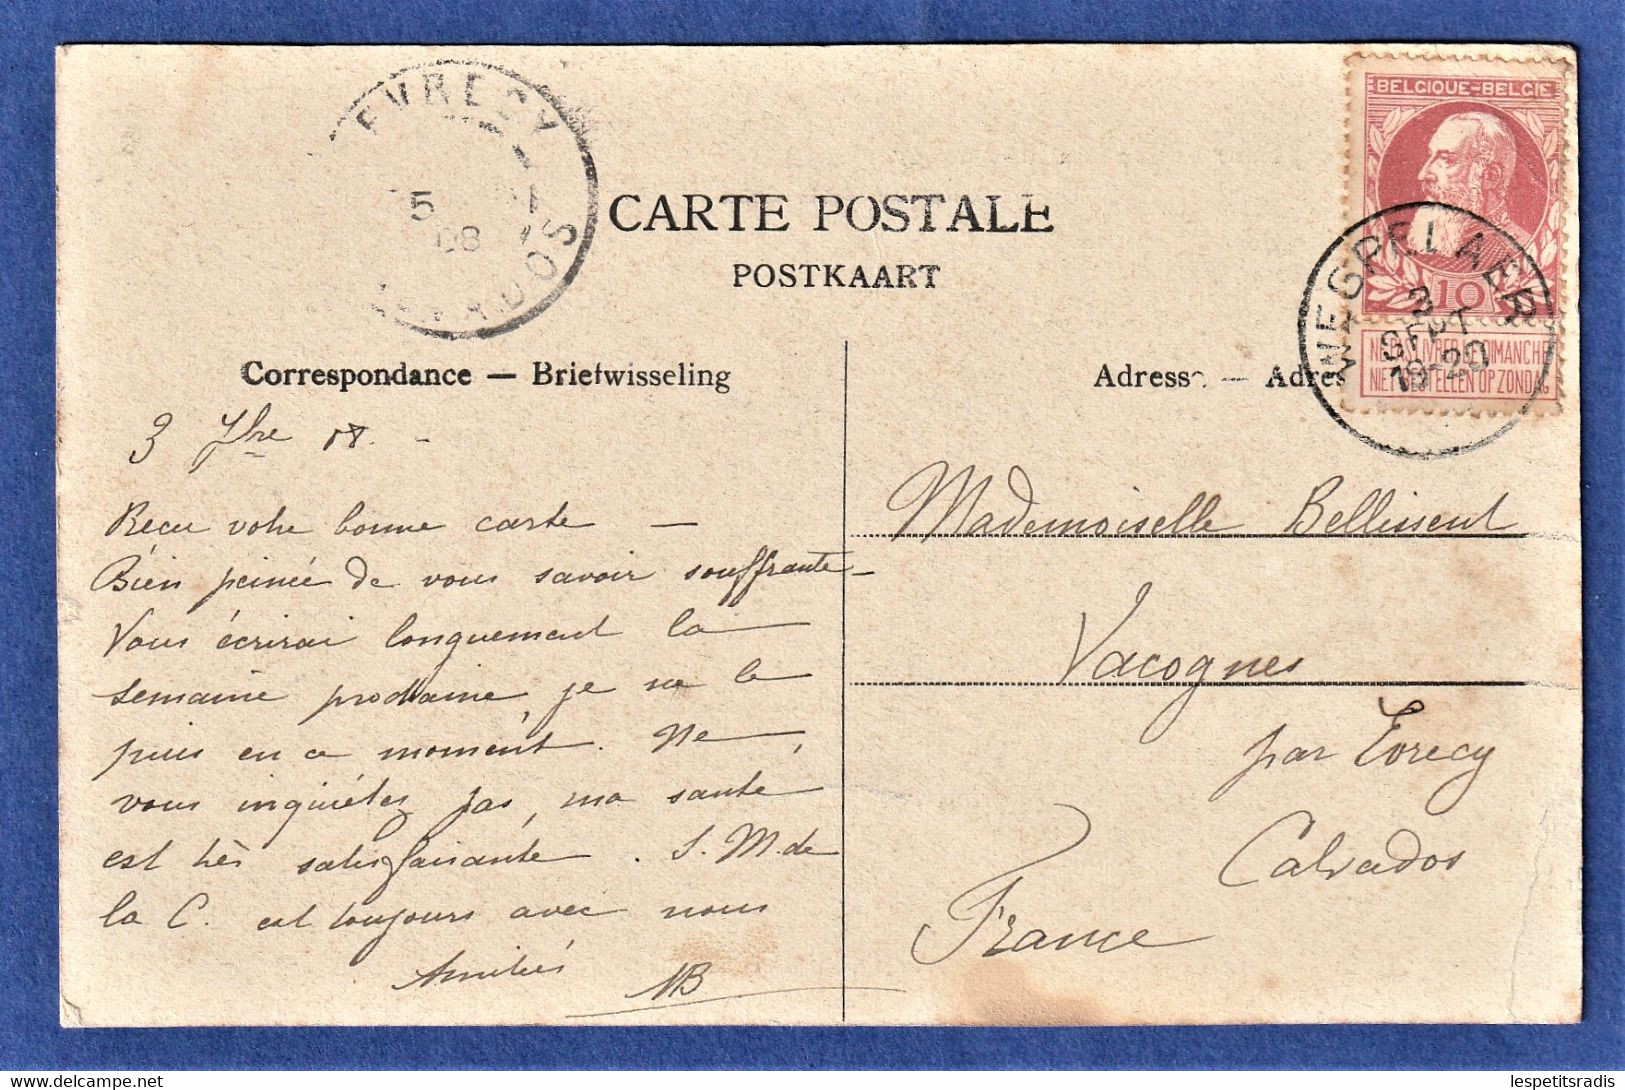 EVRECY
5
08
CALVADOS
CARTE POSTALE
POSTKAART
BELGIQUE-BELGIE
10
NE PAS LIVRER LE DIMANCHE
NIET BESTELLEN OP ZONDAG
WESPELAER
3
SEPT
19-20
Correspondance — Briefwisseling
Adresse — Adres
3 7bre 08. -
Recu votre bonne carte —
Bien peinée de vous savoir souffrante -
Vous écrirai longuement la
semaine prochaine, je ne le
puis en ce moment. Ne
vous inquiétez pas, ma santé
est très satisfaisante. S. M. de
la C. est toujours avec nous
Amitiés
MB
Mademoiselle Bellissent
Vacognes
par Evrecy
Calvados
France
lespetitsradis
delcampe.net